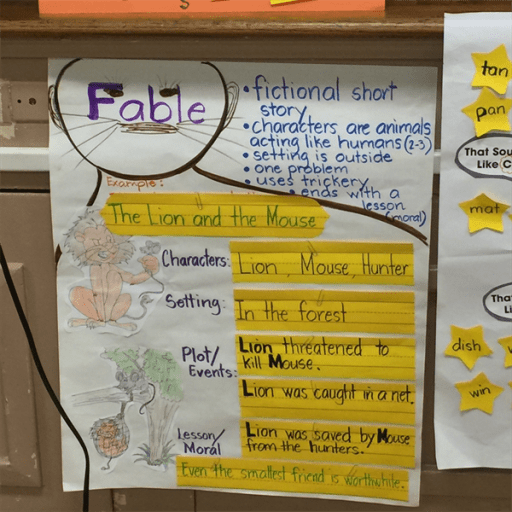 Fable
• fictional short
story
• characters are animals
acting like humans (2-3)
• setting is outside
• one problem
• uses trickery
• ends with a
lesson
(moral)
Example:
The Lion and the Mouse
Characters: Lion, Mouse, Hunter
Setting: In the forest
Plot/
Events:
Lion threatened to
kill Mouse.
Lion was caught in a net.
Lion was saved by Mouse
from the hunters.
Lesson/
Moral
Even the smallest friend is worthwhile.
tan
pan
That Sou
Like C
mat
Tha
Li
dish
win